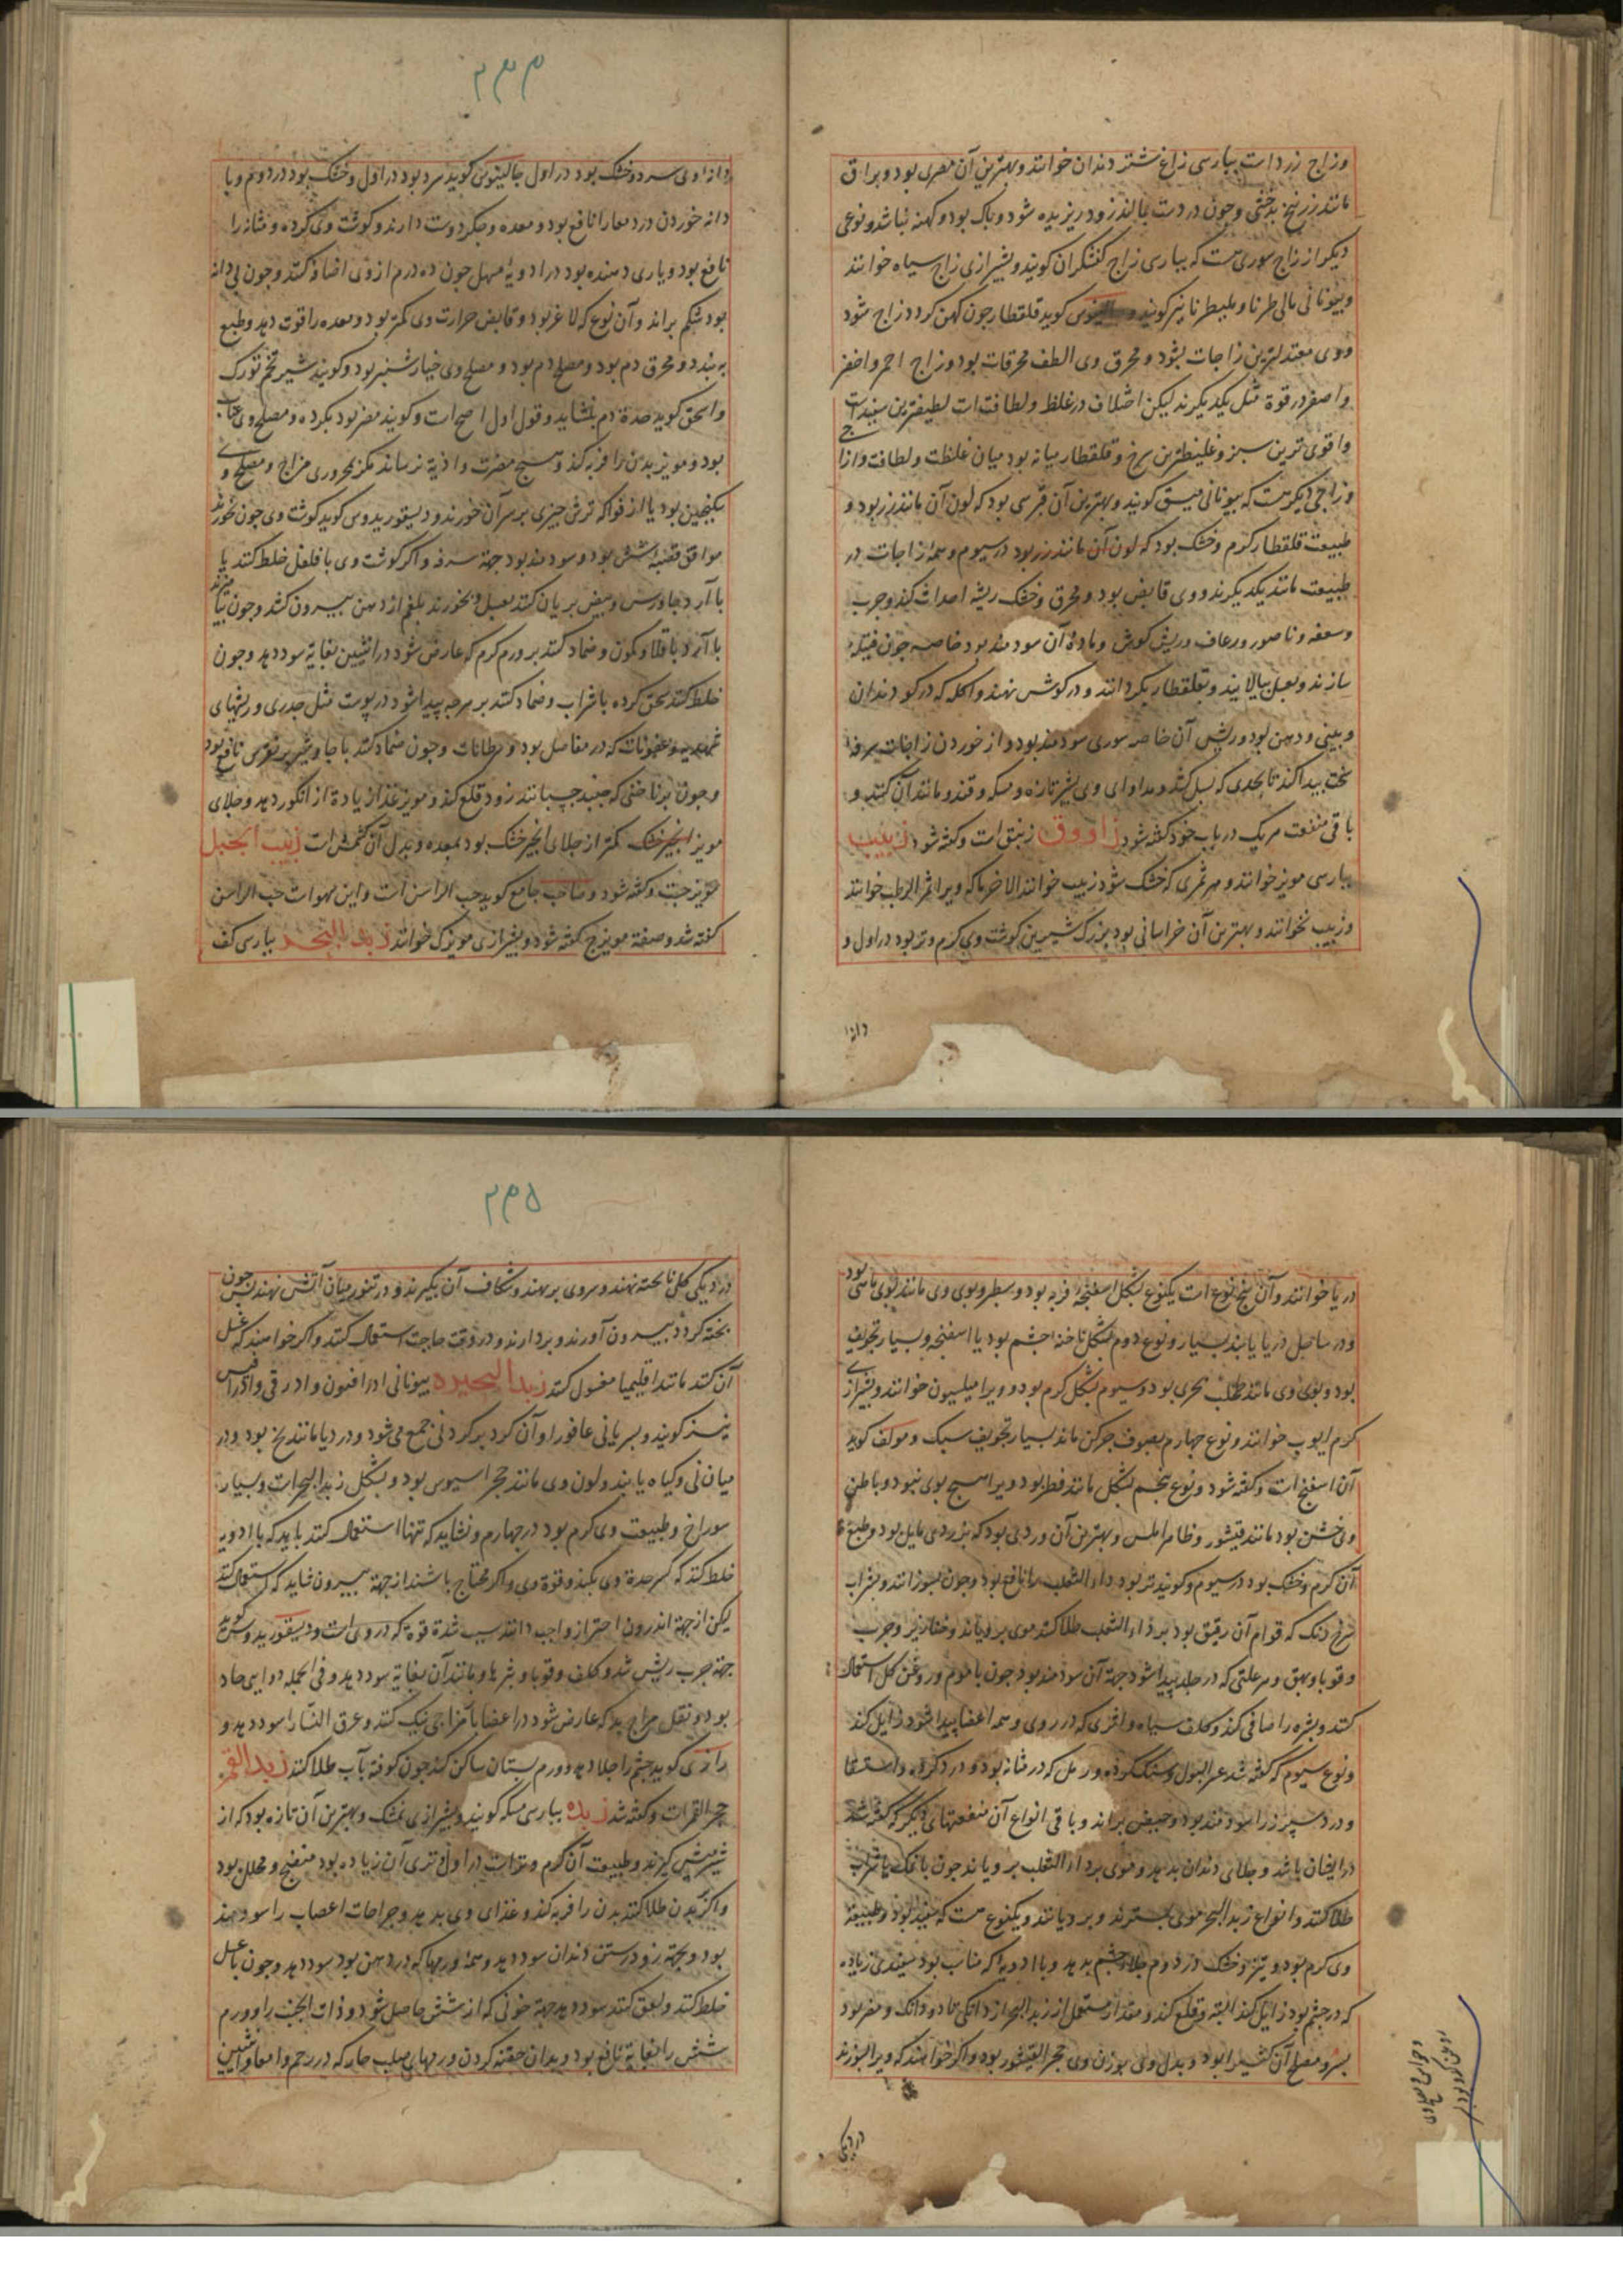 وزاج زرد است بپارسی زاغ شتر دندان خوانند و بهترین آن مصری بود و براق
مانند زرنیخ بدخشی و چون در دست بمالند زود ریزیده شود و پاک بود و کهنه نباشد و نوعی
دیکر از زاج سوریست که بپارسی زاج کفشکران کویند و بشیرازی زاج سیاه خوانند
و بیونانی مالی طرنا و ملیطرنا نیز کویند و جالینوس کوید قلقطار چون کهن کردد زاج شود
و وی معتدلترین زاجات بود و محرق وی الطف محرقات بود و زاج احمر و اخضر
و اصفر در قوة مثل یکدیکرند لیکن اختلاف در غلظ و لطافت است لطیفترین سفید است
و اقوی ترین سبز و غلیظترین سرخ و قلقطار میانه بود میان غلظت و لطافت و از
زاجی دیکرست که بیونانی میسق کویند و بهترین آن قبرسی بود که لون آن مانند زر بود و
طبیعت قلقطار کرم و خشک بود که لون آن مانند زر بود در سیوم و همه زاجات در
طبیعت مانند یکدیکرند و وی قابض بود و محرق و خشک ریشه احداث کند و جرب
و سعفه و ناصور و رعاف و ریش کوش و ماده آن سودمند بود خاصه چون فتیله
سازند و بعسل بیالایند و بقلقطار بکردانند و در کوش نهند و اکله که در کو دندان
و بینی و دهن بود و ریش آن خاصه سوری سودمند بود و از خوردن زاجات سرفه
سخت پیدا کند تا بحدی که بسل کشد و مداوای وی بشیر تازه و مسکه و قند و مانند آن کنند و
باقی منفعت هر یک در باب خود کفته شود زاووق زیبق است و کفته شود زبیب
بپارسی مویز خوانند و هر ثمری که خشک شود زبیب خوانند الا خرما که ویرا تمر الرطب خوانند
و زبیب نخوانند و بهترین آن خراسانی بود بزرک شیرین کوشت وی کرم و تر بود در اول و
دانا
۲۴۴
دانه وی سرد و خشک بود در اول جالینوس کوید سرد بود در اول و خشک بود در دوم و با
دانه خوردن درد معا را نافع بود و معده و جکر دوست دارند و کوشت وی کرده و مثانه را
نافع بود و یاری دهنده بود در ادویهٔ مسهل چون ده درم از وی اضافه کنند و چون بی دانه
بود شکم براند و آن نوع که لاغر بود و قابض حرارت وی کمتر بود و معده را قوت دهد و طبع
به بندد و محرق دم بود و مصلح دم بود و مصلح وی خیار شنبر بود و کویند شیر تخم تورک
و اسحق کوید حدة دم بنشاند و قول اول اصح است و کویند مضر بود بکرده و مصلح وی عناب
بود و مویز بدن را فربه کند و هیچ مضرت و اذیة نرساند مکر بمحروری مزاج و مصلح وی
سکنجبین بود یا از فواکه ترش چیزی بر سر آن خورند و دیسقوریدوس کوید کوشت وی چون بخورند
موافق قصبه شش بود و سودمند بود جهة سرفه و اکر کوشت وی با فلفل خلط کنند یا
با آرد جاورس و بیض بریان کنند بعسل و بخورند بلغم از دهن بیرون کشد و چون بیامیزند
با آرد باقلا و کمون و ضماد کنند بر ورم کرم که عارض شود در انثیین بغایة سود دهد و چون
خلط کنند سحق کرده با شراب و ضماد کنند بر هرچه پیدا شود در پوست مثل جدری و ریشهای
شهدیه و عفونات که در مفاصل بود و سرطانات و چون ضماد کنند با جاوشیر بر نقرس نافع بود
و چون بر ناخنی که جنبد چسبانند زود قلع کند و مویز غذا زیادة از انکور دهد و جلای
مویز انجیر خشک کمتر از جلای انجیر خشک بود بمعده و بدل آن کشمش است زبیب الجبل
میویزجست و کفته شود و صاحب جامع کوید حب الراسن است و این سهو است حب الراسن
کفته شد و صفته مویزج کفته شود و بشیرازی مویزک خوانند زبد البحر بپارسی کف
دریا خوانند و آن پنج نوع است یکنوع بشکل اسفنجه فربه بود و سطبر و بوی وی مانند بوی ماهی بود
و در ساحل دریا یابند بسیار و نوع دوم بشکل ناخنه چشم بود یا اسفنجه و بسیار تجویف
بود و بوی وی مانند طحلب بحری بود و سیوم بشکل کرم بود و ویرا میلسیون خوانند و بشیرازی
کرم ایوب خوانند و نوع چهارم بصوف چرکن ماند بسیار تجویف سبک و مولف کوید
آن اسفنج است و کفته شود و نوع پنجم بشکل مانند فطر بود و ویرا هیچ بوی نبود و باطن
وی خشن بود مانند قیشور و ظاهر املس و بهترین آن وردی بود که بزردی مایل بود و طبع
آن کرم و خشک بود در سیوم و کویند تر بود داء الثعلب را نافع بود و چون بسوزانند و بشراب
سرخ رنک که قوام آن رقیق بود بر داء الثعلب طلا کنند موی برویاند و خنازیر و جرب
و قوبا و بهق و هر علتی که در جلد پیدا شود جهة آن سودمند بود چون با موم و روغن کل استعمال
کنند و بشره را صافی کند و کلف سیاه و اثری که در روی و همه اعضا پیدا شود زایل کند
و نوع سیوم که کفته شد عسر البول و سنک کرده و رمل که در مثانه بود و درد کرده و استسقا
و درد سپرز را سودمند بود و حیض براند و باقی انواع آن منفعتهای دیکر که کفته شد
در ایشان باشد و جلای دندان بدهد و موی بر داء الثعلب برویاند چون با نمک یا شراب
طلا کنند و انواع زبد البحر موی بسترند و برویانند و یکنوع هست که سفید بود و طبیعة
وی کرم بود و تیز و خشک در دوم جلای چشم بدهد و با ادویه که مناسب بود سفیدی زیاده
که در چشم بود زایل کند البته و قلع کند و مقدار مستعمل از زبد البحر از دانکی تا دو دانک و مضر بود
بسر و مصلح آن کتیرا بود و بدل وی بوزن وی حجر القیشور بود و اکر خواهند که ویرا بسوزند
در دیکی
۲۴۵
در دیکی کلی ناپخته نهند و سروی بر نهند و شکاف آن بکیرند و در تنور میان آتش نهند پس چون
پخته کردد بیرون آورند و بردارند و در وقت حاجت استعمال کنند و اکر خواهند که غسل
آن کنند مانند اقلیمیا مغسول کنند زبد البحیره بیونانی ادرافنون و ادرقی و ادراقیس
نیز کویند و بسریانی عافورا و آن کرد بر کرد نی جمع می شود و در دیا مانند یخ بود و در
میان نی و کیاه یابند و لون وی مانند حجر اسیوس بود و بشکل زبد البحر است و بسیار
سوراخ و طبیعت وی کرم بود در چهارم و نشاید که تنها استعمال کنند باید که با ادویه
خلط کنند که کسر حدة وی بکند و قوة وی و اکر محتاج باشند از جهة بیرون شاید که استعمال کنند
لیکن از جهة اندرون احتراز واجب دانند بسبب شدة قوة که در وی است و دیسقوریدوس کوید
جهة جرب ریش شده و کلف و قوبا و بثرها و مانند آن بغایة سود دهد و فی الجمله دوایی حاد
بود و نقل مزاج بد که عارض شود در اعضا با مزاجی نیک کند و عرق النسا را سود دهد و
رازی کوید چشم را جلا دهد و ورم پستان ساکن کند چون کوفته بآب طلا کنند زبد القمر
حجر القمر است و کفته شد زبده بپارسی مسکه کویند و بشیرازی نمشک و بهترین آن تازه بود که از
شیر میش کیرند و طبیعت آن کرم و تر است در اول تری آن زیاده بود منضج و محلل بود
و اکر بر بدن طلا کنند بدن را فربه کند و غذای وی بدهد و جراحات اعصاب را سودمند
بود و بجهة زود رستن دندان سود دهد و همهٔ ورمها که در دهن بود سود دهد و چون با عسل
خلط کنند و لعق کنند سود دهد جهة خونی که از شش حاصل شود و ذات الجنب را و ورم
شش را بغایة نافع بود و بدان حقنه کردن ورمهای صلب حار که در رحم و امعا و انثیین